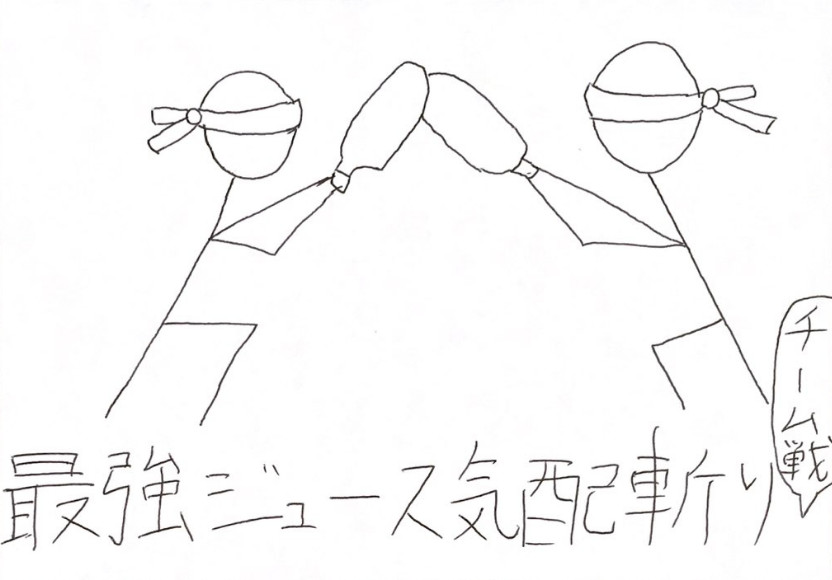 最強ジュース気配斬り
チーム戦